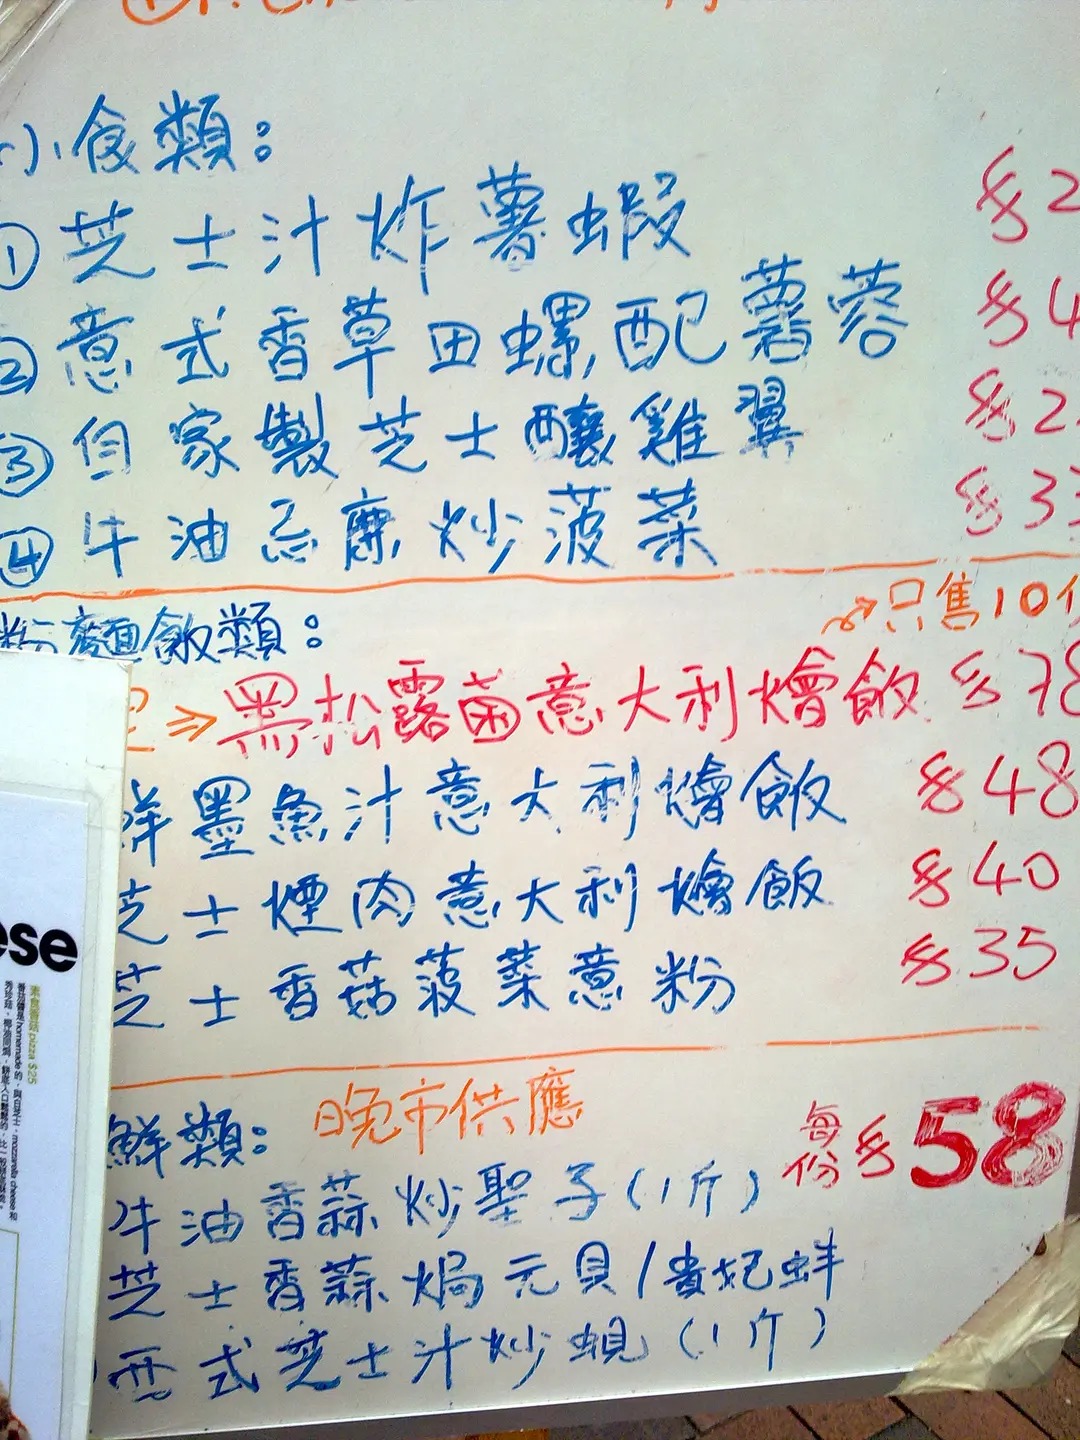 小食類：
① 芝士汁炸薯蝦 $2
② 意式香草田螺配薯蓉 $4
③ 自家製芝士釀雞翼 $2
④ 牛油忌廉炒菠菜 $33
粉麵飯類：
→只售10份
⇒黑松露菌意大利燴飯 $78
鮮墨魚汁意大利燴飯 $48
芝士煙肉意大利燴飯 $40
芝士香菇菠菜意粉 $35
鮮類： 晚市供應 每份 $58
牛油香蒜炒聖子（1斤）
芝士香蒜焗元貝/貴妃蚌
西式芝士汁炒蜆（1斤）
ese
素食香菇pizza $25